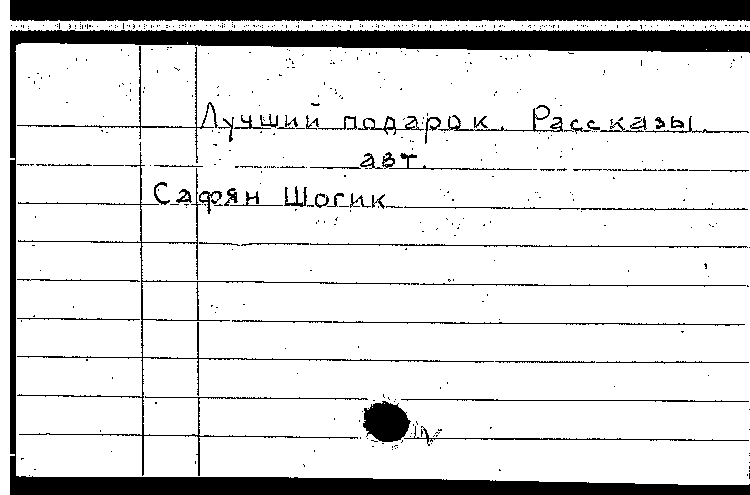 Лучший подарок. Рассказы.
авт.
Сафян Шогик